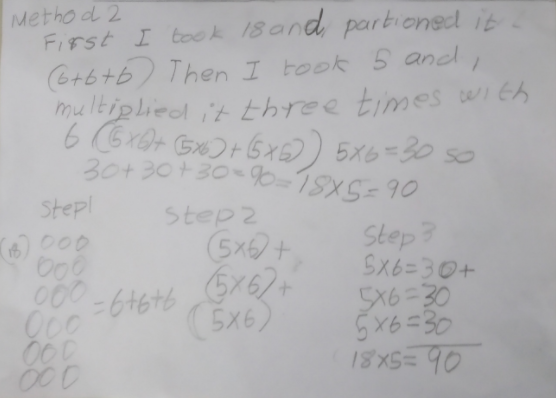 Method 2
First I took 18 and, partioned it
(6+6+6) Then I took 5 and,
multiplied it three times with
6 ((5x6)+(5x6)+(5x6)) 5x6=30 so
30+30+30=90=18x5=90
Step1
000
000
000
000
000
000
=6+6+6
Step 2
(5x6)+
(5x6)+
(5x6)
Step 3
5x6=30+
5x6=30
5x6=30
18x5=90